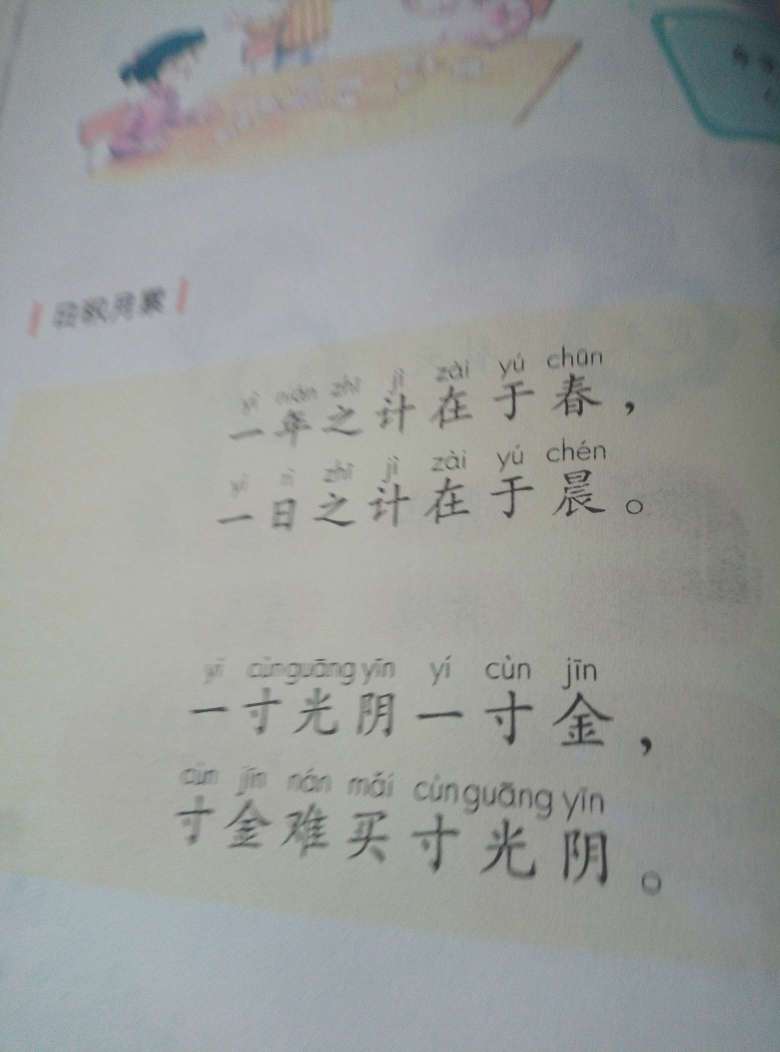 日积月累
yì nián zhī jì zài yú chūn
一年之计在于春，
yí rì zhī jì zài yú chén
一日之计在于晨。
yí cùn guāng yīn yí cùn jīn
一寸光阴一寸金，
cùn jīn nán mǎi cùn guāng yīn
寸金难买寸光阴。